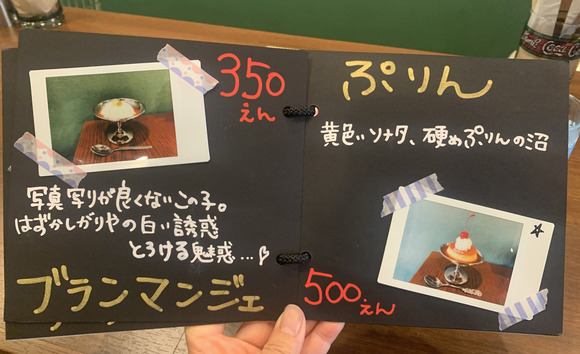 350
えん
写真写りが良くないこの子。
はずかしがりやの白い誘惑
とろける魅惑…
ブランマンジェ
ぷりん
黄色いソナタ、硬めぷりんの沼
500えん